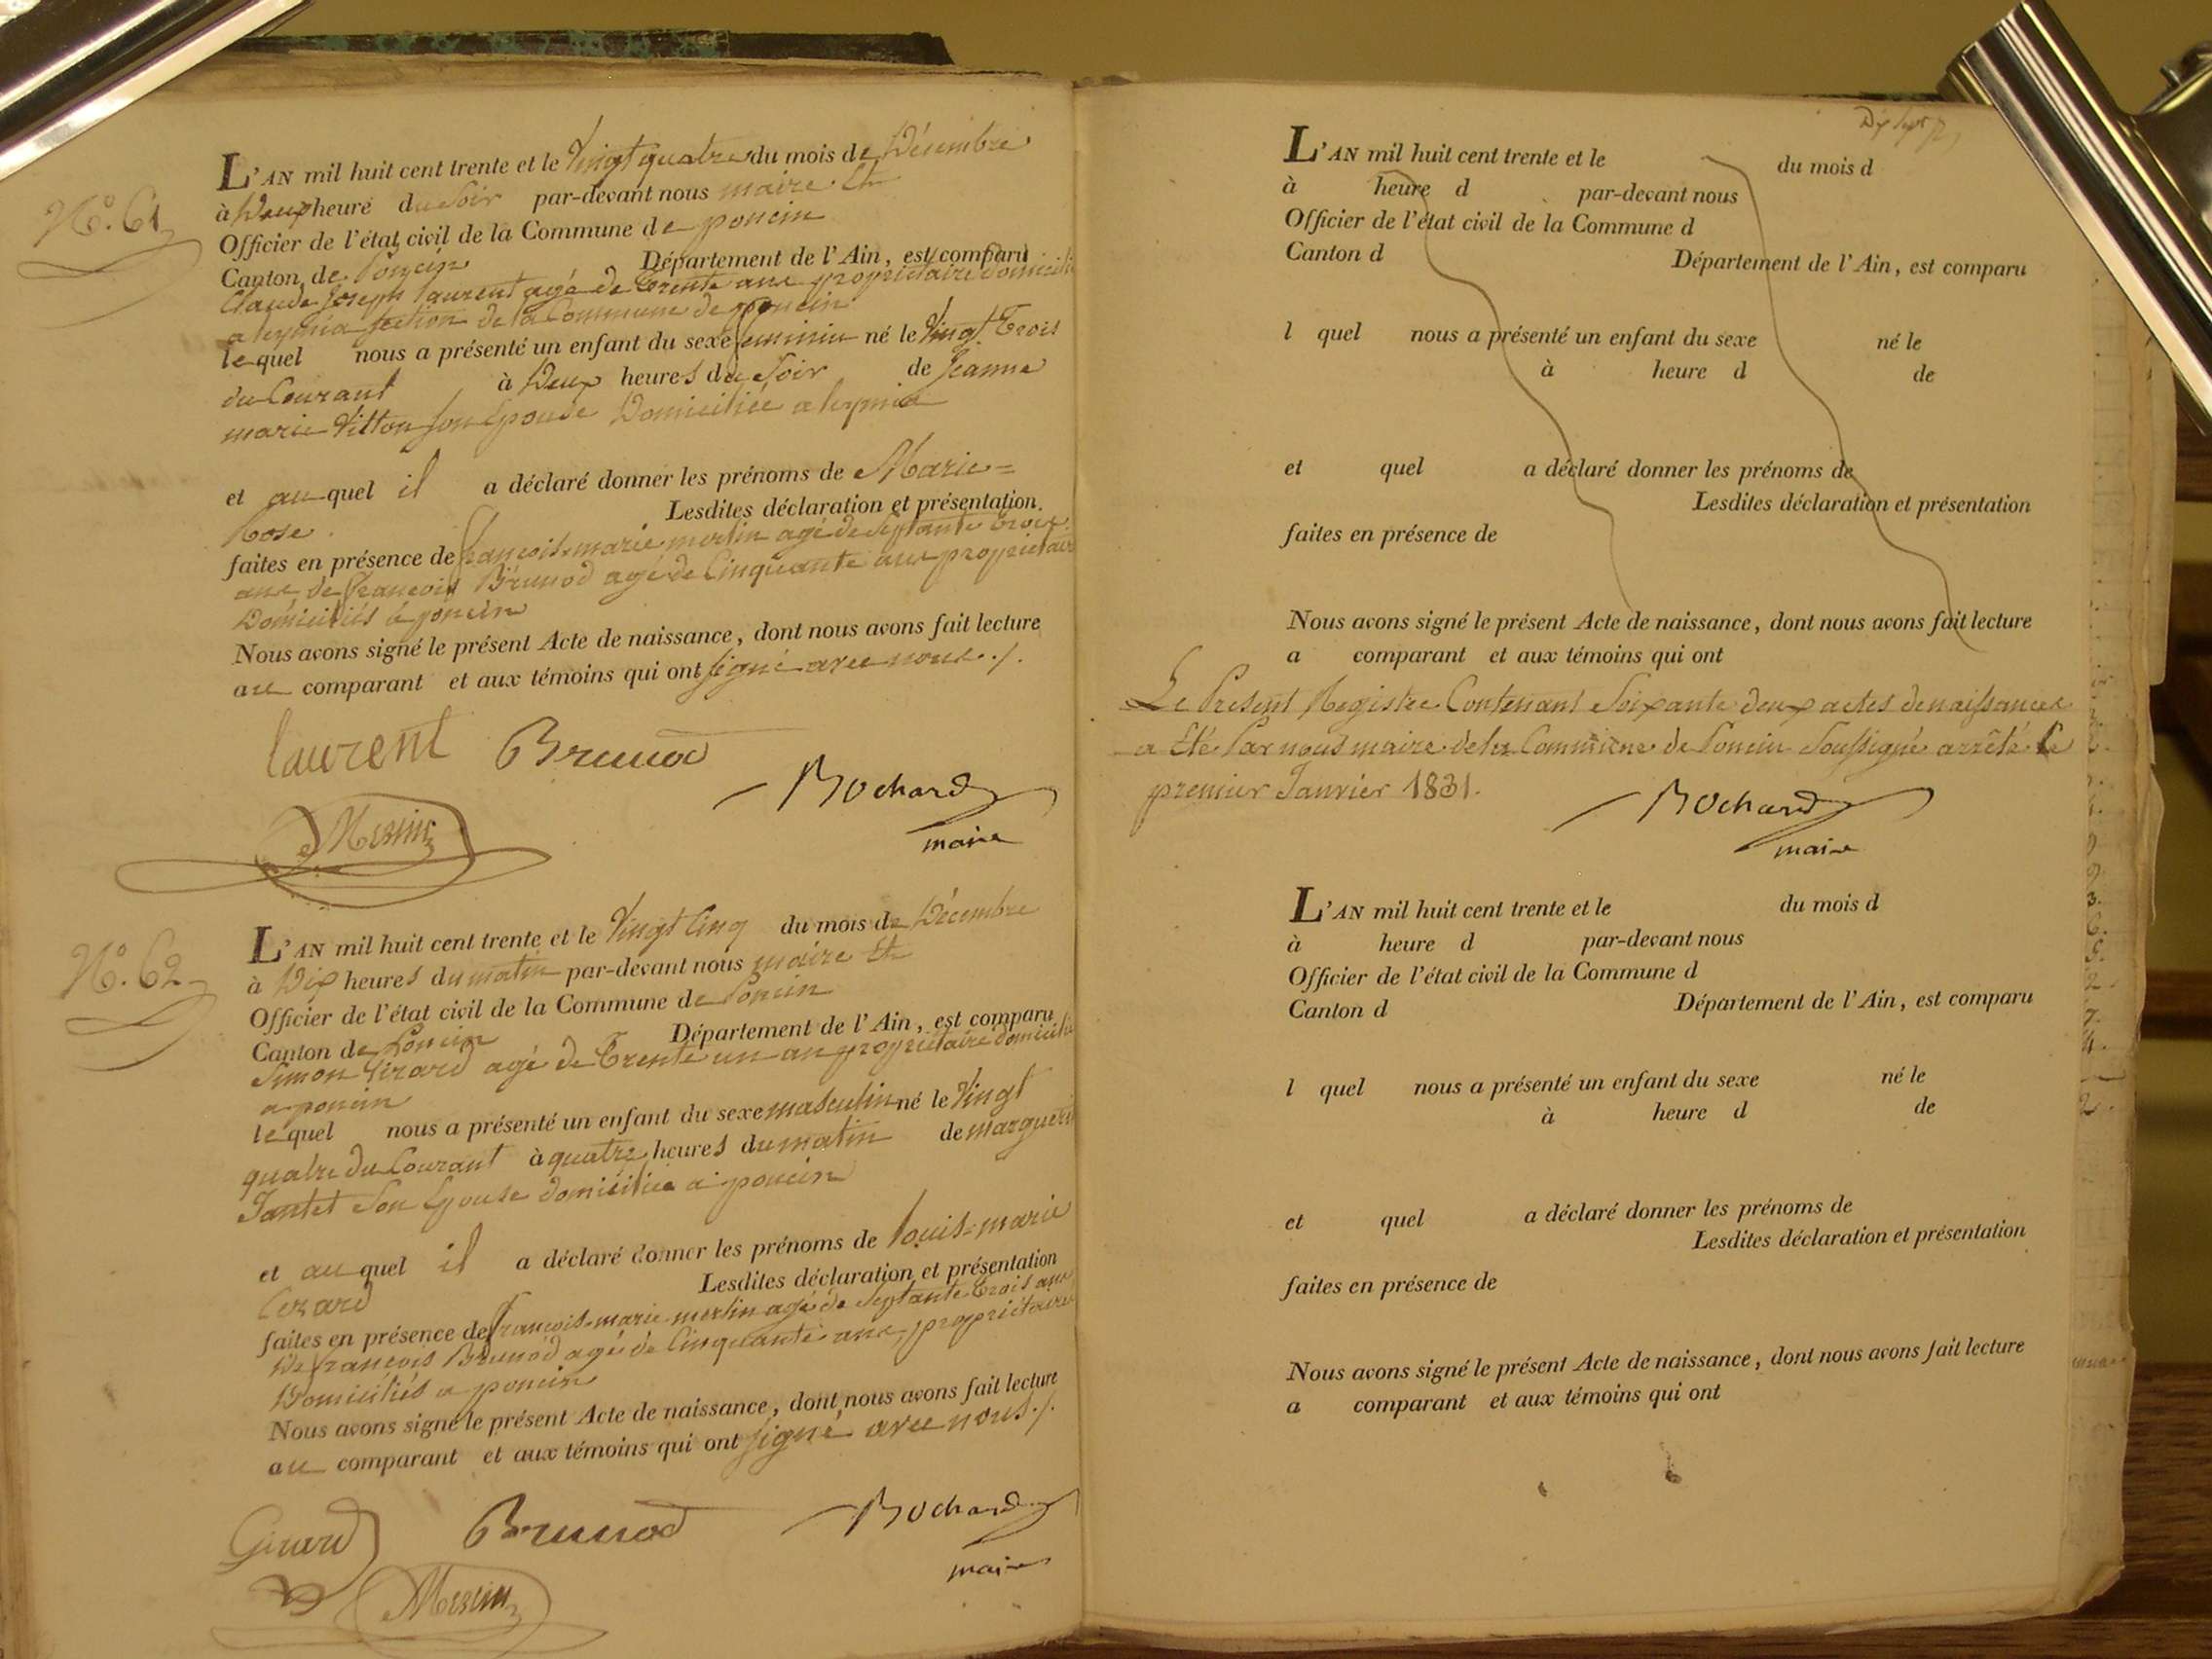 N°. 61
L'AN mil huit cent trente et le Vingt quatre du mois de Décembre
à Deux heure du Soir par-devant nous maire Et
Officier de l'état civil de la Commune de poncin
Canton de Poncin Département de l'Ain, est comparu
Claude Joseph laurent agé de Trente ans propriétaire domicilié
a leymia section de la Commune de poncin
lequel nous a présenté un enfant du sexe feminin né le Vingt Trois
du Courant à Deux heures du Soir de Jeanne
marie Vitton son Epouse Domiciliée a leymia
et auquel il a déclaré donner les prénoms de Marie=
Rose. Lesdites déclaration et présentation
faites en présence de françois-marie merlin agé de Septante Trois
ans, de françois Brunod agé de Cinquante ans propriétaires
Domiciliés à poncin
Nous avons signé le présent Acte de naissance, dont nous avons fait lecture
au comparant et aux témoins qui ont signé avec nous ./.
laurent Brunod
Bochard
maire
Merlin
N°. 62
L'AN mil huit cent trente et le Vingt Cinq du mois de Décembre
à Dix heures du matin par-devant nous maire Et
Officier de l'état civil de la Commune de Poncin
Canton de Poncin Département de l'Ain, est comparu
Simon Girard agé de Trente un an propriétaire domicilié
a poncin
lequel nous a présenté un enfant du sexe masculin né le Vingt
quatre du Courant à quatre heures du matin de marguerit
Jantet Son Epouse domiciliée a poncin
et auquel il a déclaré donner les prénoms de louis-marie
Lesdites déclaration et présentation
faites en présence de françois-marie merlin agé de Septante Trois ans
De françois Brunod agé de Cinquante ans, propriétaires
Domiciliés a poncin
Nous avons signé le présent Acte de naissance, dont nous avons fait lecture
au comparant et aux témoins qui ont signé avec nous ./.
Girard Brunod Bochard
maire
Merlin
L'AN mil huit cent trente et le du mois d
à heure d par-devant nous
Officier de l'état civil de la Commune d
Canton d Département de l'Ain, est comparu
l quel nous a présenté un enfant du sexe né le
à heure d de
et quel a déclaré donner les prénoms de
Lesdites déclaration et présentation
faites en présence de
Nous avons signé le présent Acte de naissance, dont nous avons fait lecture
a comparant et aux témoins qui ont
Le Présent Registre Contenant Soixante deux actes de naissances
a Eté Par nous maire de la Commune de Poncin Soussigné arrêté le
premier Janvier 1831.
Bochard
maire
L'AN mil huit cent trente et le du mois d
à heure d par-devant nous
Officier de l'état civil de la Commune d
Canton d Département de l'Ain, est comparu
l quel nous a présenté un enfant du sexe né le
à heure d de
et quel a déclaré donner les prénoms de
Lesdites déclaration et présentation
faites en présence de
Nous avons signé le présent Acte de naissance, dont nous avons fait lecture
a comparant et aux témoins qui ont